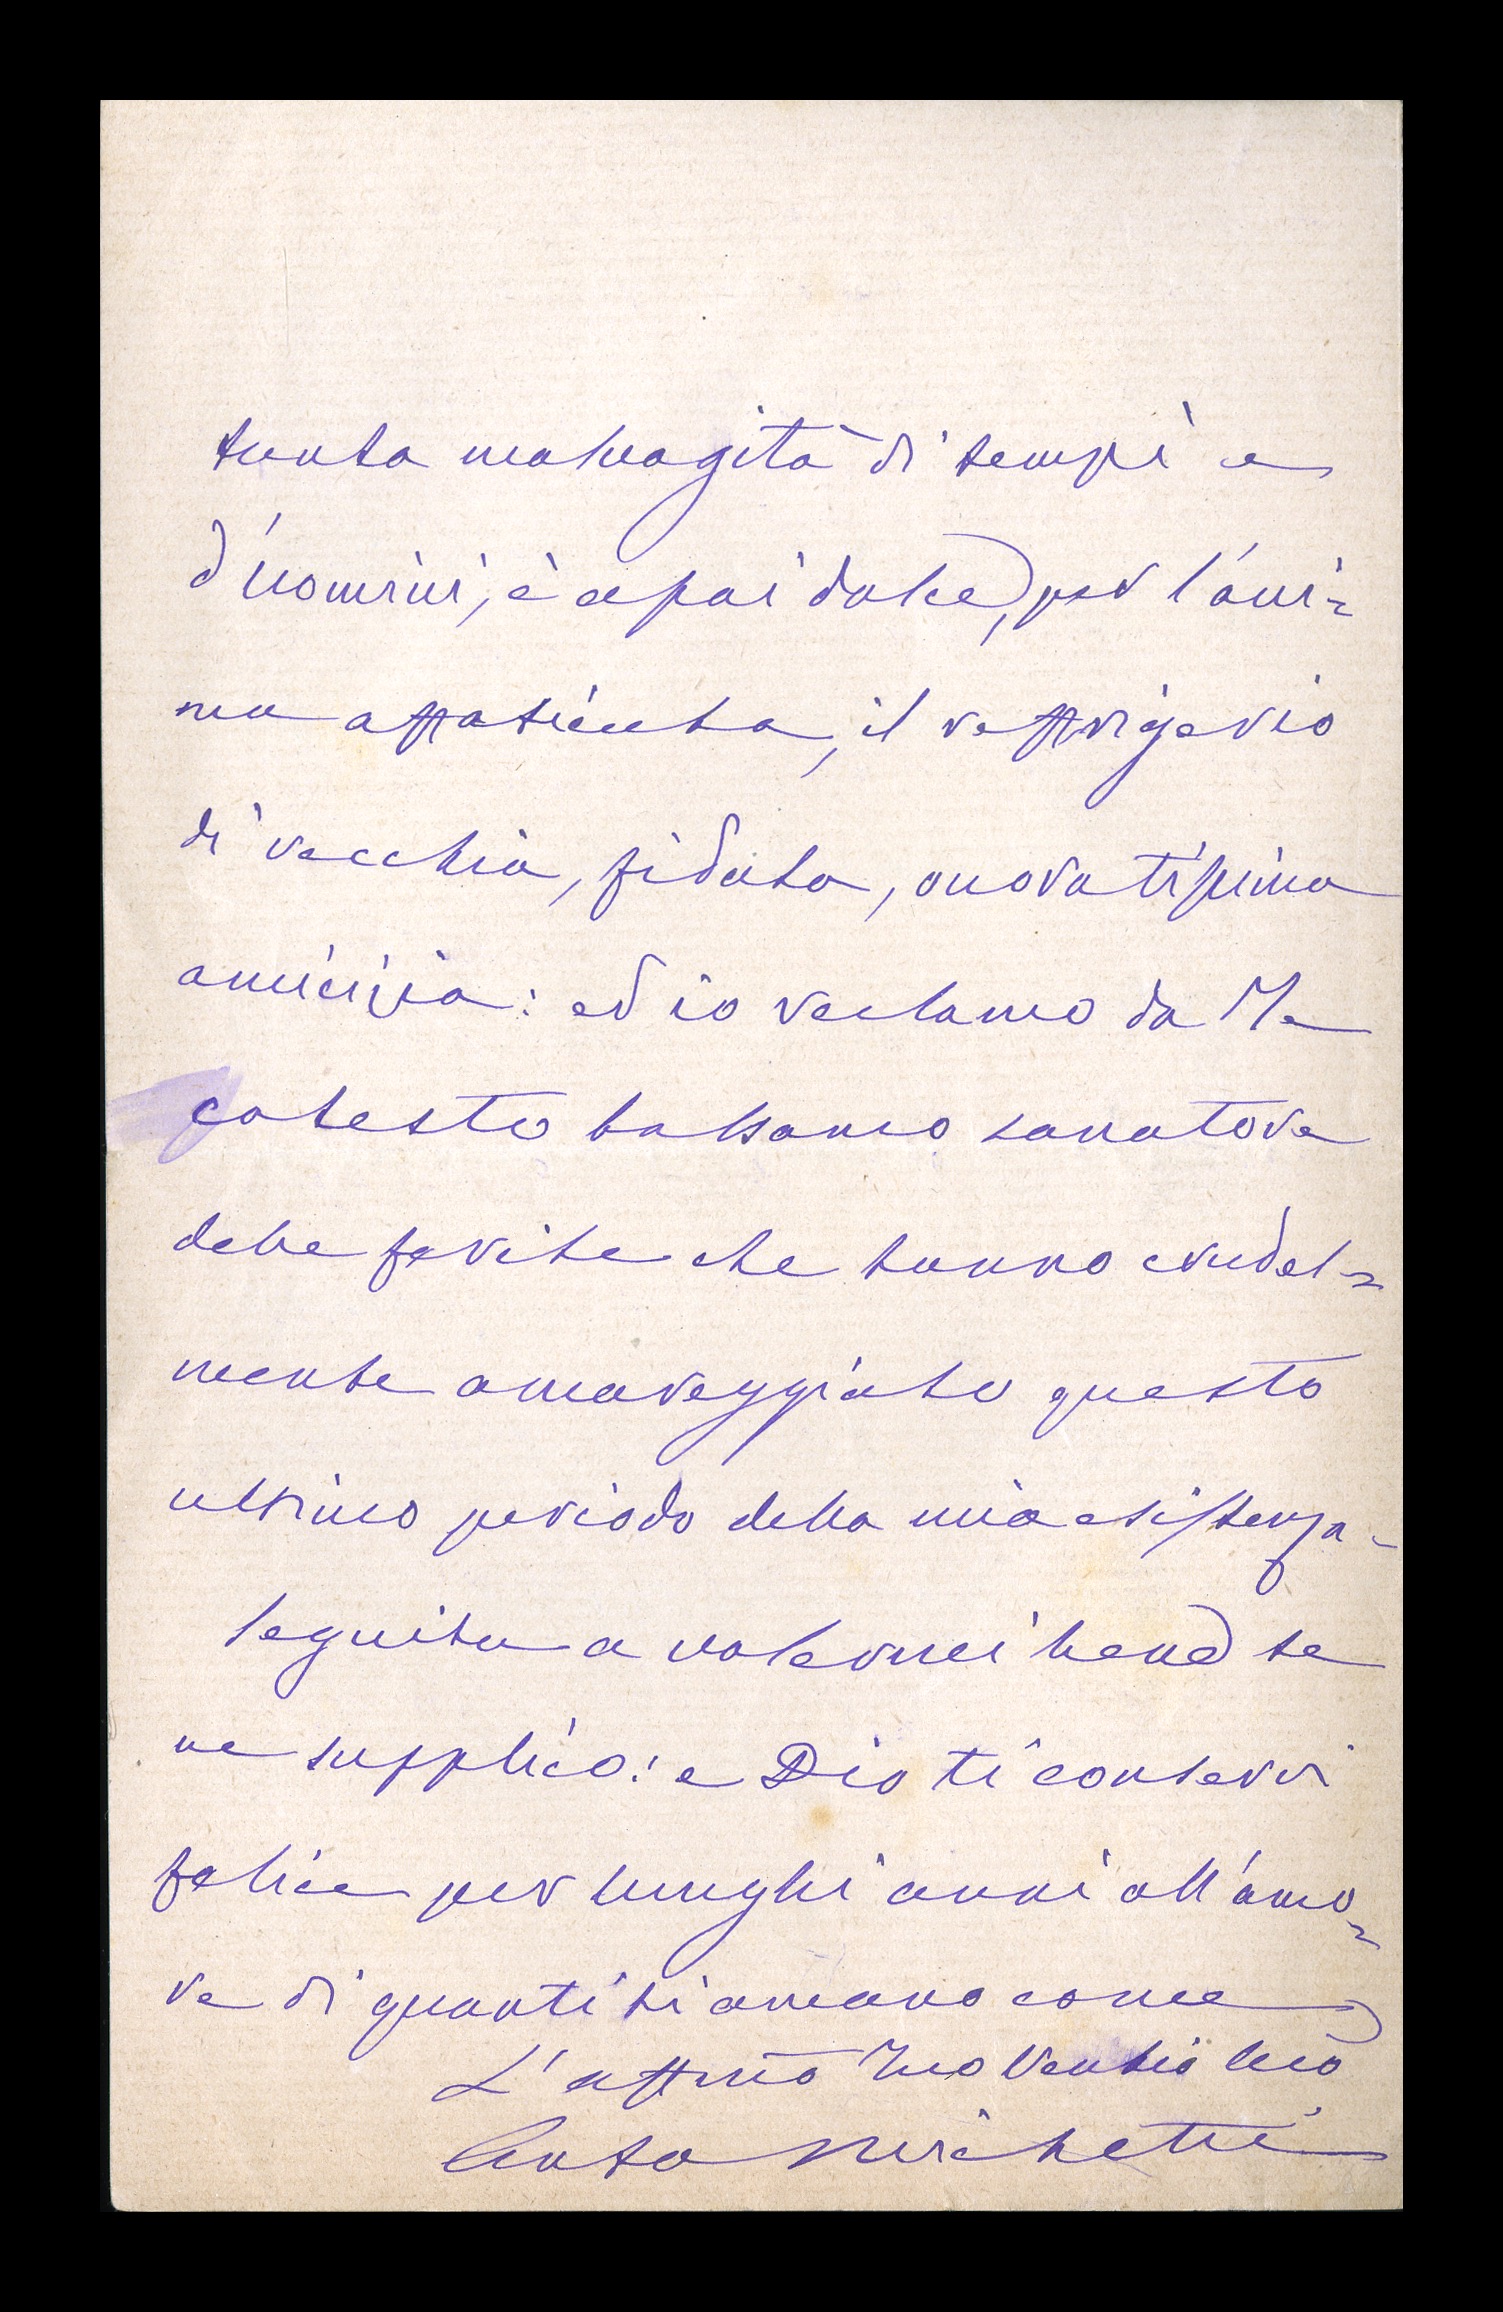 tanta malvagità di tempi e
d'uomini, è assai dolce, per l'ani=
ma affaticata, il reffrigerio
di vecchia, fidata, onoratissima
amicizia: ed io reclamo da Te
cotesto balsamo sanatore
delle ferite che hanno crudel=
mente amareggiato questo
ultimo periodo della mia esistenza.
Seguita a volermi bene, te
ne supplico: e Dio ti conservi
felice per lunghi anni all'amo=
re di quanti ti amano come
L'affmo Tuo Vecchio
Anto Michetti